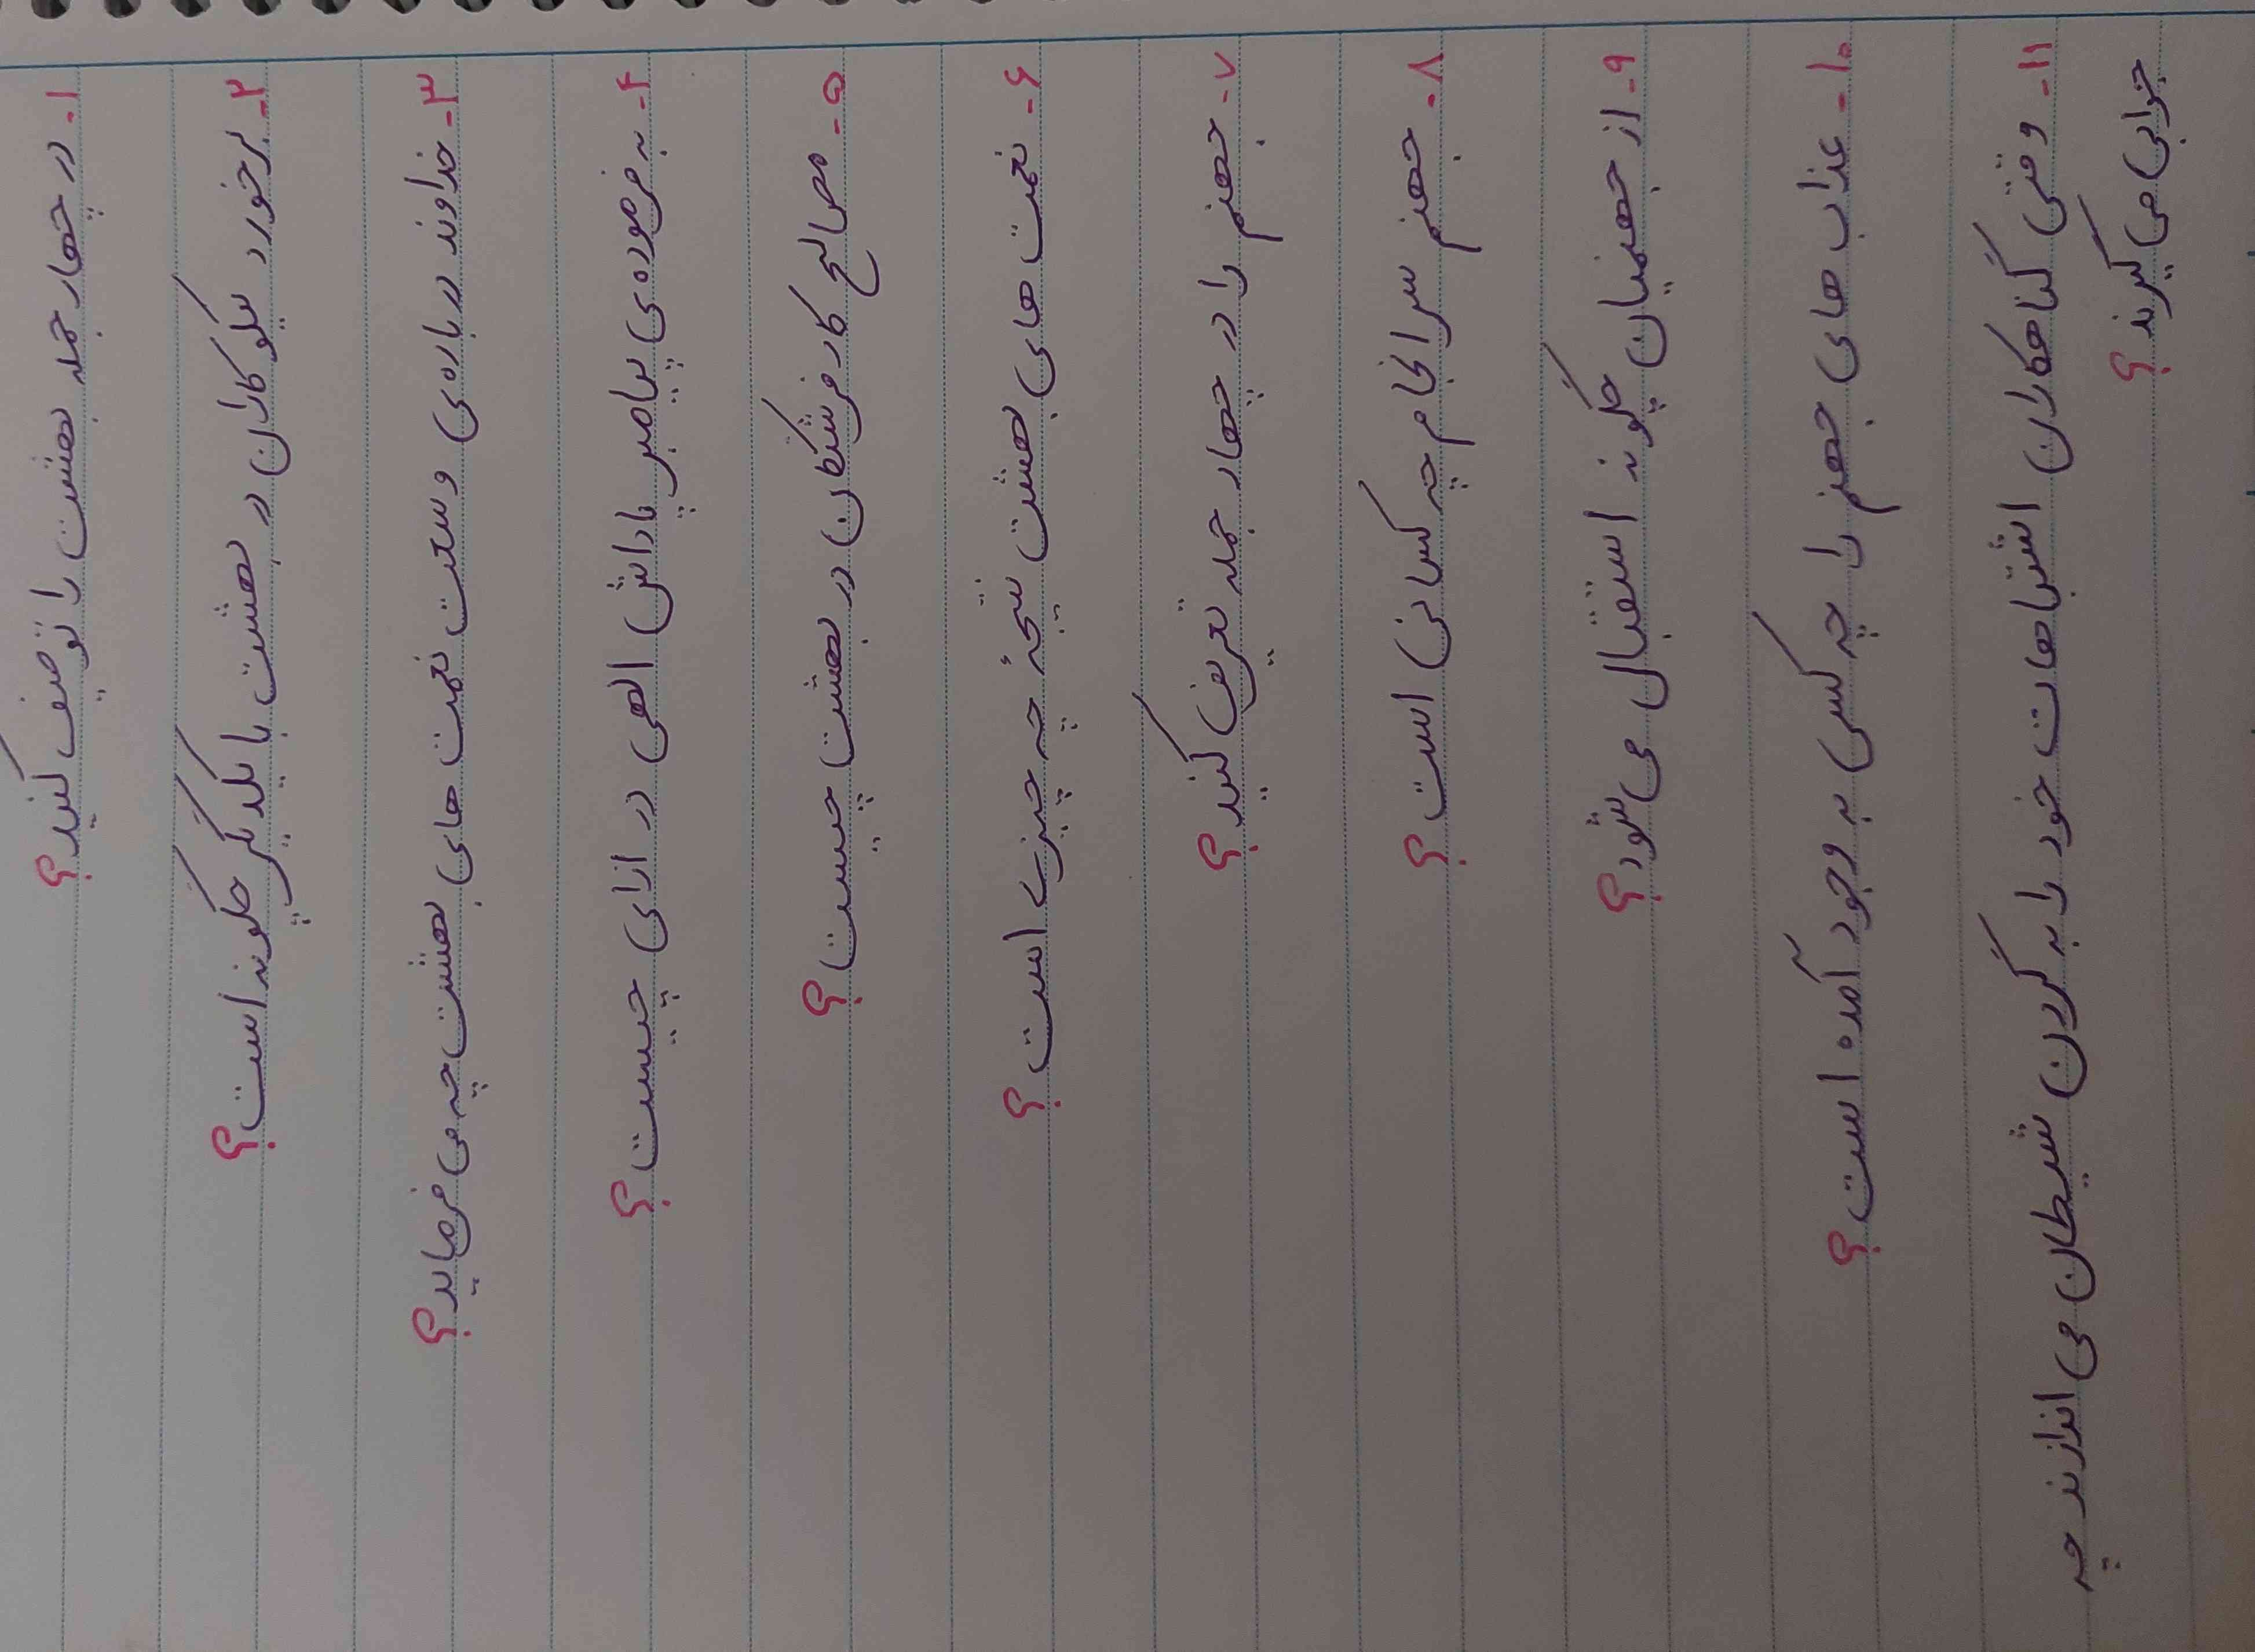 ۱- در چهار جمله بهشت را توصیف کنید؟
۲- برخورد نیکوکاران در بهشت با یکدیگر چگونه است؟
۳- خداوند درباره‌ی وسعت نعمت های بهشت چه می فرماید؟
۴- به فرموده‌ی پیامبر پاداش الهی در ازای چیست؟
۵- مصالح کار فرشتگان در بهشت چیست؟
۶- نعمت های بهشت نتیجهٔ چه چیزی است؟
۷- جهنم را در چهار جمله تعریف کنید؟
۸- جهنم سرانجام چه کسانی است؟
۹- از جهنمیان چگونه استقبال می شود؟
۱۰- عذاب های جهنم را چه کسی به وجود آمده است؟
۱۱- وقتی گناهکاران اشتباهات خود را به گردن شیطان می اندازند چه
جوابی می گیرند؟